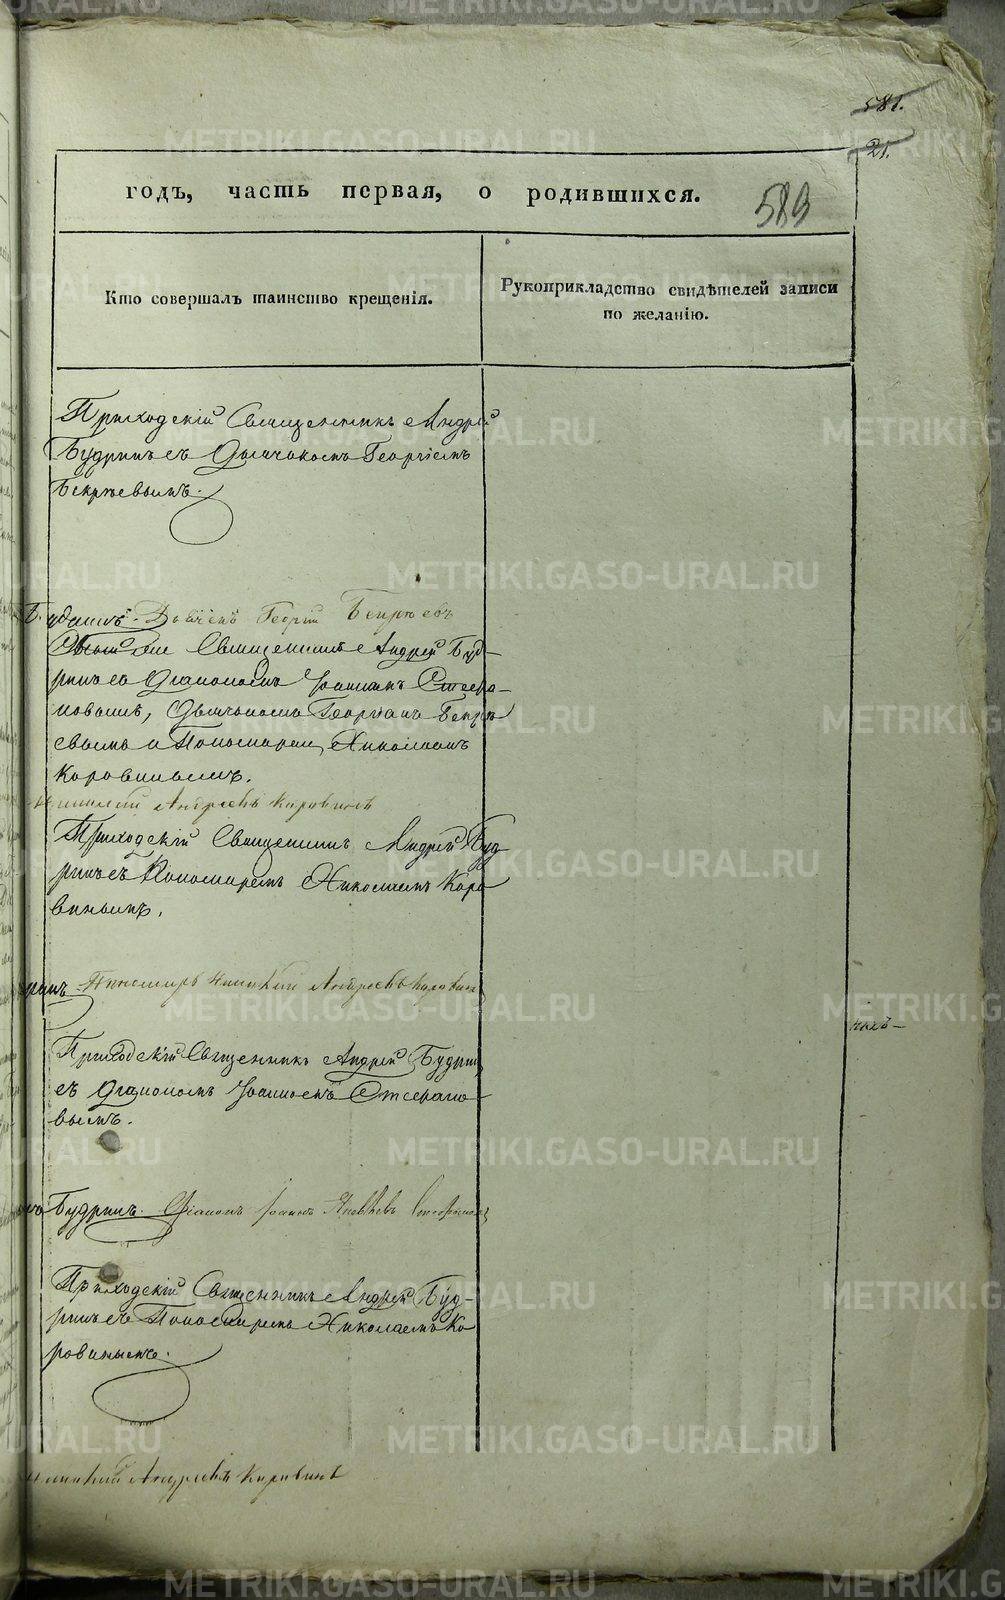 581.
21.
годъ, часть первая, о родившихся.
589
Кто совершалъ таинство крещенія.
Рукоприкладство свидѣтелей записи
по желанію.
Приходскій Священникъ Андрей
Будринъ съ Дьячкомъ Георгіемъ
Бекряевымъ.
Дьячекъ Георгій Бекряевъ
Священникъ Андрей Буд-
ринъ со Діакономъ Іоанномъ Стефа-
новымъ, Дьячкомъ Георгіемъ Бекря
евымъ и Пономаремъ Николаемъ
Коровинымъ.
Андреевъ Коровинъ
Приходскій Священникъ Андрей Буд
ринъ съ Пономаремъ Николаемъ Коро
винымъ.
Пономарь Николай Андреевъ Коровинъ
Приходскій Священникъ Андрей Будрин
съ Діакономъ Іоанномъ Стефано
вымъ.
Будринъ. Діаконъ Іоаннъ Яковлевъ
Приходскій Священникъ Андрей Буд-
ринъ съ Пономаремъ Николаемъ Ко
ровинымъ.
Николай Андреевъ Коровинъ
METRIKI.GASO-URAL.RU